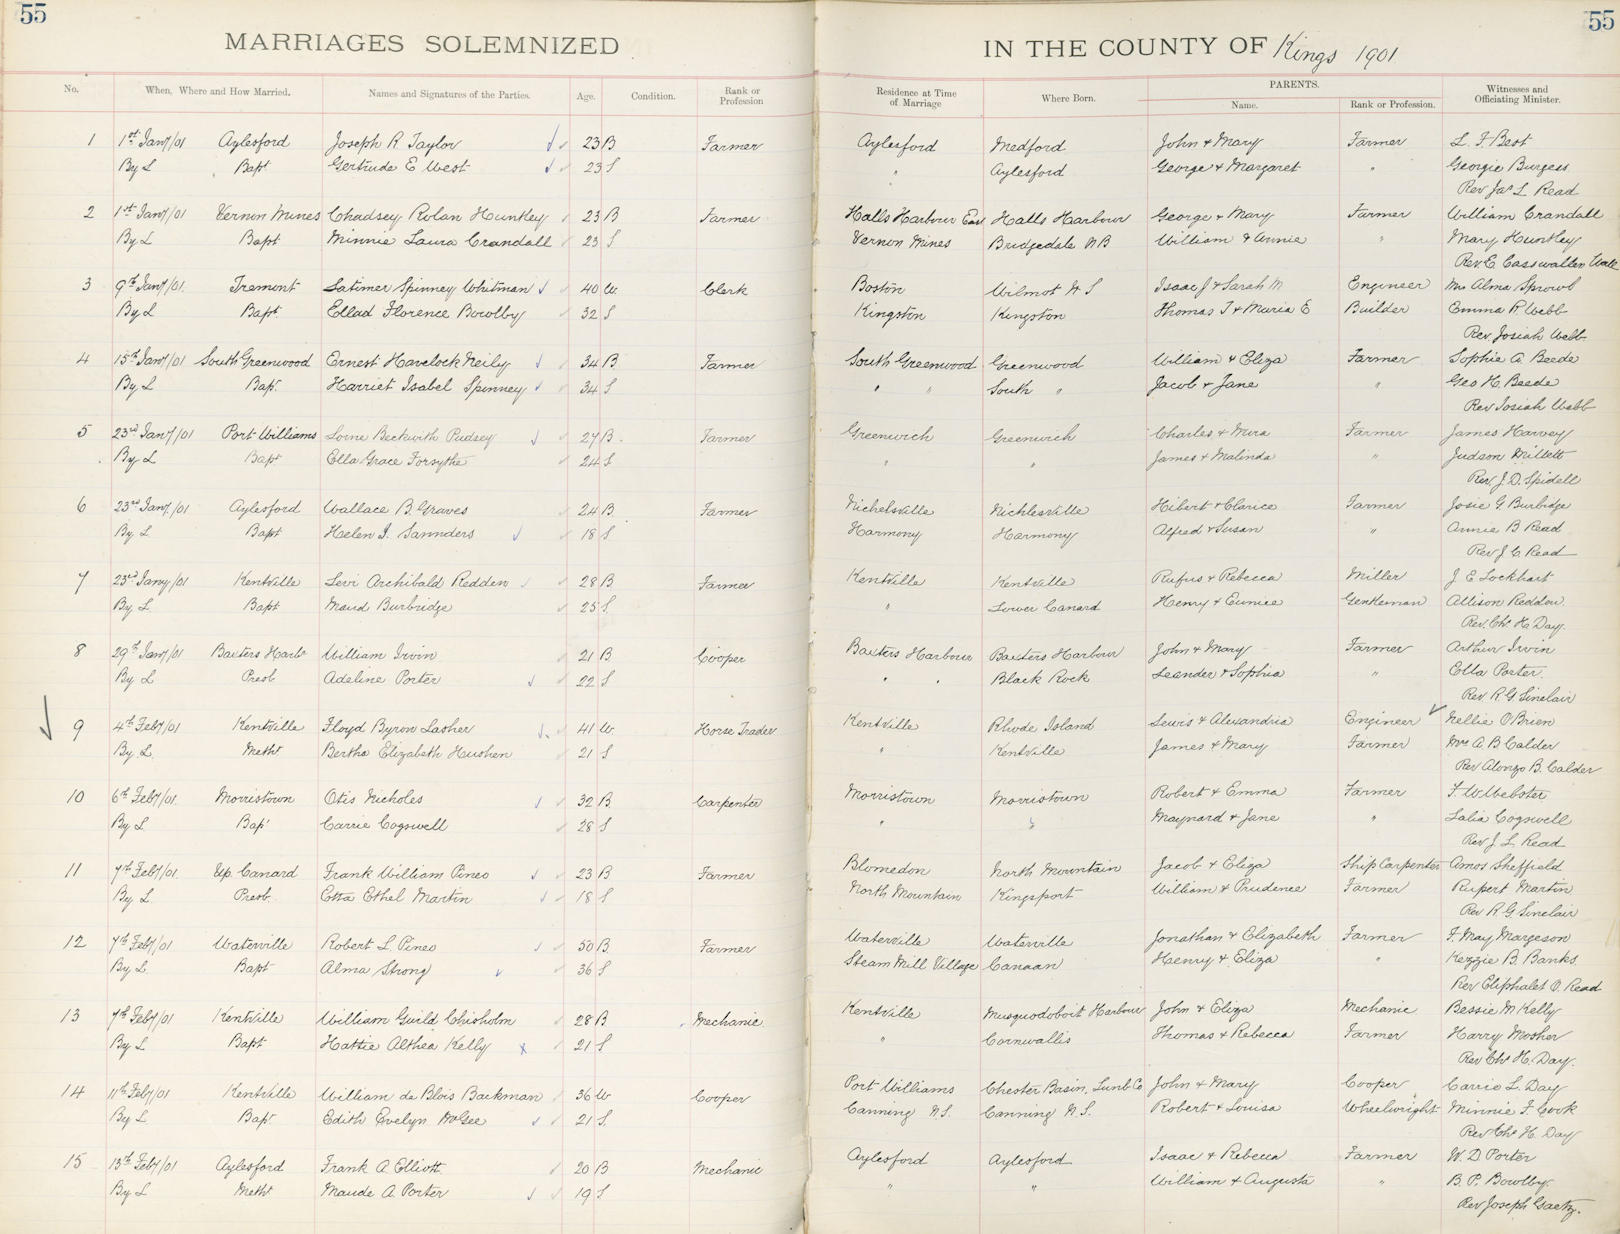 55
55
MARRIAGES SOLEMNIZED IN THE COUNTY OF Kings 1901
No. When, Where and How Married. Names and Signatures of the Parties. Age. Condition. Rank or Profession Residence at Time of Marriage Where Born. PARENTS. Name. Rank or Profession. Witnesses and Officiating Minister.
1 1st Jany/01 Aylesford Joseph R Taylor 23 B Farmer Aylesford Medford John & Mary Farmer L. F. Best
By L Bapt Gertrude E West 23 S " Aylesford George & Margaret " Georgie Burgess
Rev Jas L Read
2 1st Jany/01 Vernon Mines Chadsey Rolan Huntley 23 B Farmer Halls Harbour East Halls Harbour George & Mary Farmer William Crandall
By L Bapt Minnie Laura Crandall 23 S Vernon Mines Bridgedale NB William & Annie " Mary Huntley
Rev E Casswallen
3 9th Jany/01 Tremont Latimer Spinney Whitman 40 W. Clerk Boston Wilmot N S Isaac J & Sarah M Engineer Mrs Alma Sprowl
By L Bapt Ellad Florence Bowlby 32 S Kingston Kingston Thomas T & Maria E Builder Emma R Webb
Rev Josiah Webb
4 15th Jany/01 South Greenwood Ernest Havelock Neily 34 B Farmer South Greenwood Greenwood William & Eliza Farmer Sophie A Beede
By L Bapt Harriet Isabel Spinney 34 S " " South " Jacob & Jane " Geo H. Beede
Rev Josiah Webb
5 23rd Jany/01 Port Williams Lorne Beckwith Pudsey 27 B. Farmer Greenwich Greenwich Charles & Mira Farmer James Harvey
By L Bapt Ella Grace Forsythe 24 S " " James & Malinda " Judson Millett
Rev J. D. Spidell
6 23rd Jany/01 Aylesford Wallace B. Graves 24 B. Farmer Nichelsville Nichlesville Hibert & Clarice Farmer Josie G Burbidge
By L Bapt Helen I. Saunders 18 S Harmony Harmony Alfred & Susan " Annie B Read
Rev J C Read
7 23rd Jany/01 Kentville Levi Archibald Redden 28 B Farmer Kentville Kentville Rufus & Rebecca Miller J E Lockhart
By L. Bapt Maud Burbridge 25 S " Lower Canard Henry & Eunice Gentleman Allison Redden.
Rev. Chs H. Day.
8 29th Jany/01 Baxters Harbr William Irvin 21 B Cooper Baxters Harbour Baxters Harbour John & Mary Farmer Arthur Irvin
By L Presb Adeline Porter 22 S " " Black Rock Leander & Sophia " Ella Porter.
Rev R. G. Sinclair
9 4th Feby/01 Kentville Floyd Byron Lasher 41 W. Horse Trader Kentville Rhode Island Lewis & Alexandria Engineer Nellie O'Brien
By L. Metht Bertha Elizabeth Hushen 21 S " Kentville James & Mary Farmer Mrs A. B Calder
Rev Alonzo B. Calder
10 6th Feby/01. Morristown Otis Nicholes 32 B. Carpenter Morristown Morristown Robert & Emma Farmer F. W Webster
By L Bapt Carrie Cogswell 28 S " " Maynard & Jane " Lalia Cogswell
Rev J L Read
11 7th Feby/01. Up. Canard Frank William Pineo 23 B Farmer Blomedon North Mountain Jacob & Eliza Ship Carpenter Amos Sheffield
By L. Presb. Etta Ethel Martin 18 S North Mountain Kingsport William & Prudence Farmer Rupert Martin
Rev R. G. Sinclair
12 7th Feby/01 Waterville Robert L Pineo 50 B. Farmer Waterville Waterville Jonathan & Elizabeth Farmer F. May Margeson
By L Bapt Alma Strong 36 S Steam Mill Village Canaan Henry & Eliza " Kezzie B. Banks.
Rev Eliphalet O. Read
13 7th Feby/01 Kentville William Guild Chisholm 28 B Mechanic. Kentville Musquodoboit Harbour John & Eliza Mechanic Bessie M Kelly
By L Bapt Hattie Althea Kelly x 21 S " Cornwallis Thomas & Rebecca Farmer Harry Mosher
Rev Chs H. Day.
14 11th Feby/01 Kentville William de Blois Barkman 36 W Cooper Port Williams Chester Basin, Lunb Co John & Mary Cooper Carrie L. Day
By L Bapt Edith Evelyn McGee 21 S. Canning N.S. Canning N.S. Robert & Louisa Wheelwright Minnie F. Cook
Rev Chs H. Day
15 13th Feby/01 Aylesford Frank A Elliott 20 B Mechanic Aylesford Aylesford Isaac & Rebecca Farmer W. D Porter
By L Metht Maude A. Porter 19 S " " William & Augusta " B. P. Bowlby.
Rev Joseph Gaetz.